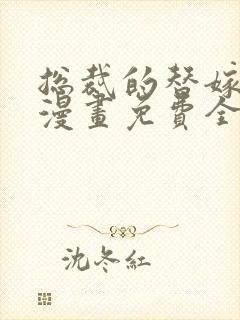 总裁的替嫁
漫畫免費全
沈冬紅